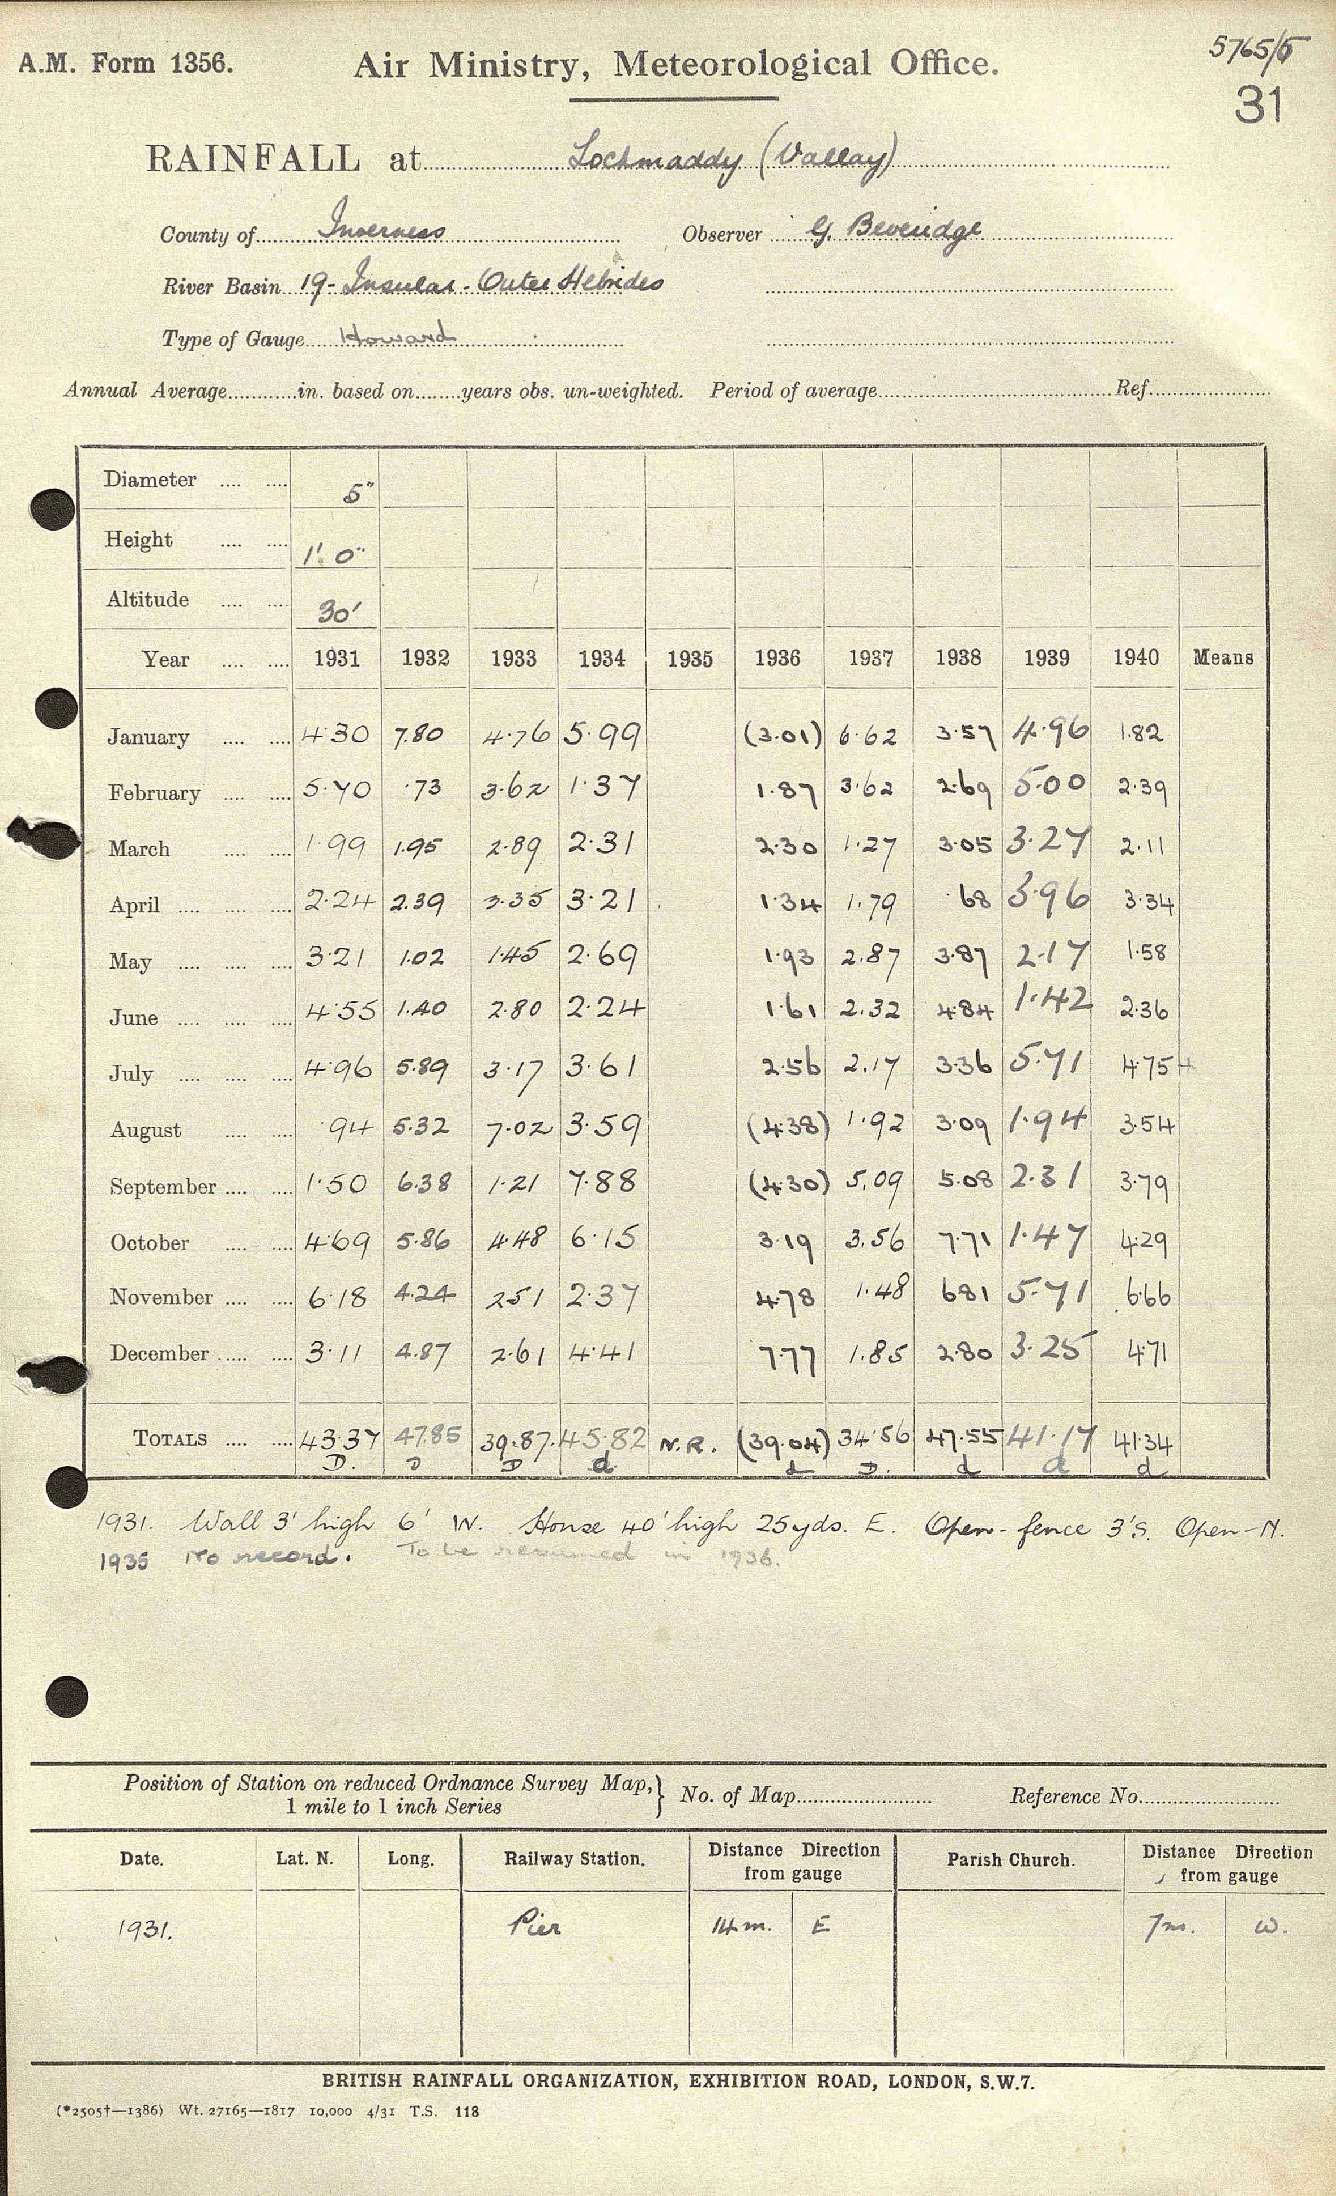 A.M. Form 1356. Air Ministry, Meteorological Office. 5765/5
31
RAINFALL at Lochmaddy (Vallay)
County of Inverness Observer G. Beveridge
River Basin 19 - Insular - Outer Hebrides
Type of Gauge Howard
Annual Average in. based on years obs. un-weighted. Period of average Ref.
Diameter 5"
Height 1' 0"
Altitude 30'
Year 1931 1932 1933 1934 1935 1936 1937 1938 1939 1940 Means
January 4.30 7.80 4.76 5.99 (3.01) 6.62 3.57 4.96 1.82
February 5.70 .73 3.62 1.37 1.87 3.62 2.69 5.00 2.39
March 1.99 1.95 2.89 2.31 2.30 1.27 3.05 3.27 2.11
April 2.24 2.39 3.35 3.21 1.34 1.79 .68 3.96 3.34
May 3.21 1.02 1.45 2.69 1.93 2.87 3.87 2.17 1.58
June 4.55 1.40 2.80 2.24 1.61 2.32 4.84 1.42 2.36
July 4.96 5.89 3.17 3.61 2.56 2.17 3.36 5.71 4.75
August .94 5.32 7.02 3.59 (4.38) 1.92 3.09 1.94 3.54
September 1.50 6.38 1.21 7.88 (4.30) 5.09 5.08 2.31 3.79
October 4.69 5.86 4.48 6.15 3.19 3.56 7.71 1.47 4.29
November 6.18 4.24 2.51 2.37 4.78 1.48 6.81 5.71 6.66
December 3.11 4.87 2.61 4.41 7.77 1.85 2.80 3.25 4.71
TOTALS 43.37 47.85 39.87 45.82 N.R. (39.04) 34.56 47.55 41.17 41.34
D. D D d d D. d d d
1931. Wall 3' high 6' W. House 40' high 25 yds. E. Open - fence 3' S. Open - N.
1935 No record. To be resumed in 1936.
Position of Station on reduced Ordnance Survey Map, } No. of Map Reference No.
1 mile to 1 inch Series
Date. Lat. N. Long. Railway Station. Distance Direction from gauge Parish Church. Distance Direction from gauge
1931. Pier 14 m. E 7m. W.
BRITISH RAINFALL ORGANIZATION, EXHIBITION ROAD, LONDON, S.W.7.
(*2505†—1386) Wt. 27165—1817 10,000 4/31 T.S. 118